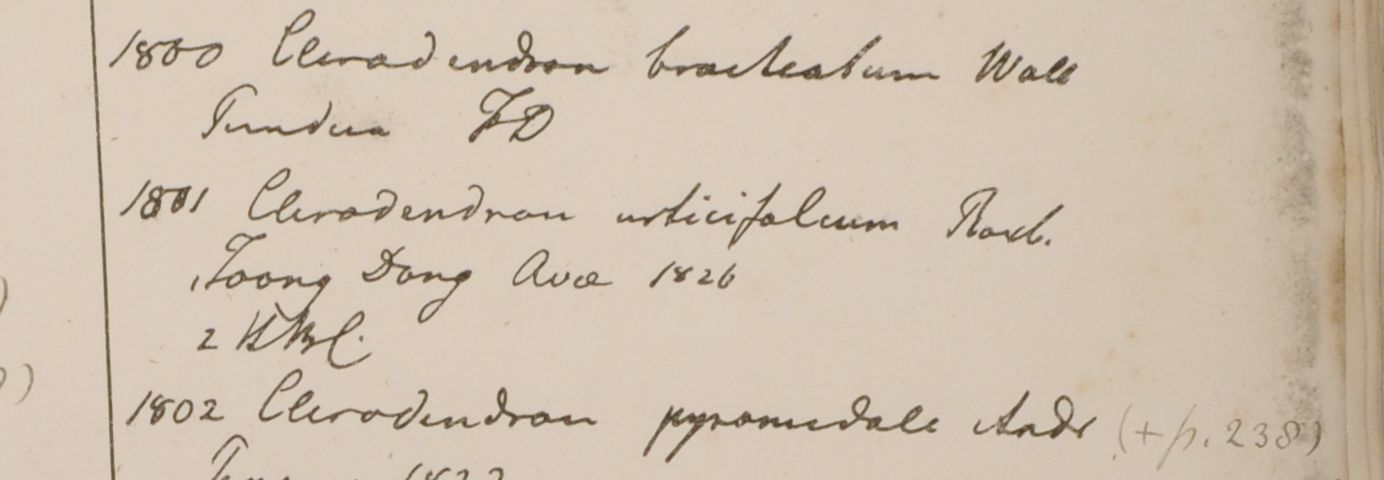 1800 Clerodendron bracteatum Wall
Tundua FD
1801 Clerodendron urticifolium Roxb.
Toong Dong Avæ 1826
2 HBC.
1802 Clerodendron pyramidale Andr (+ p. 238)
1822